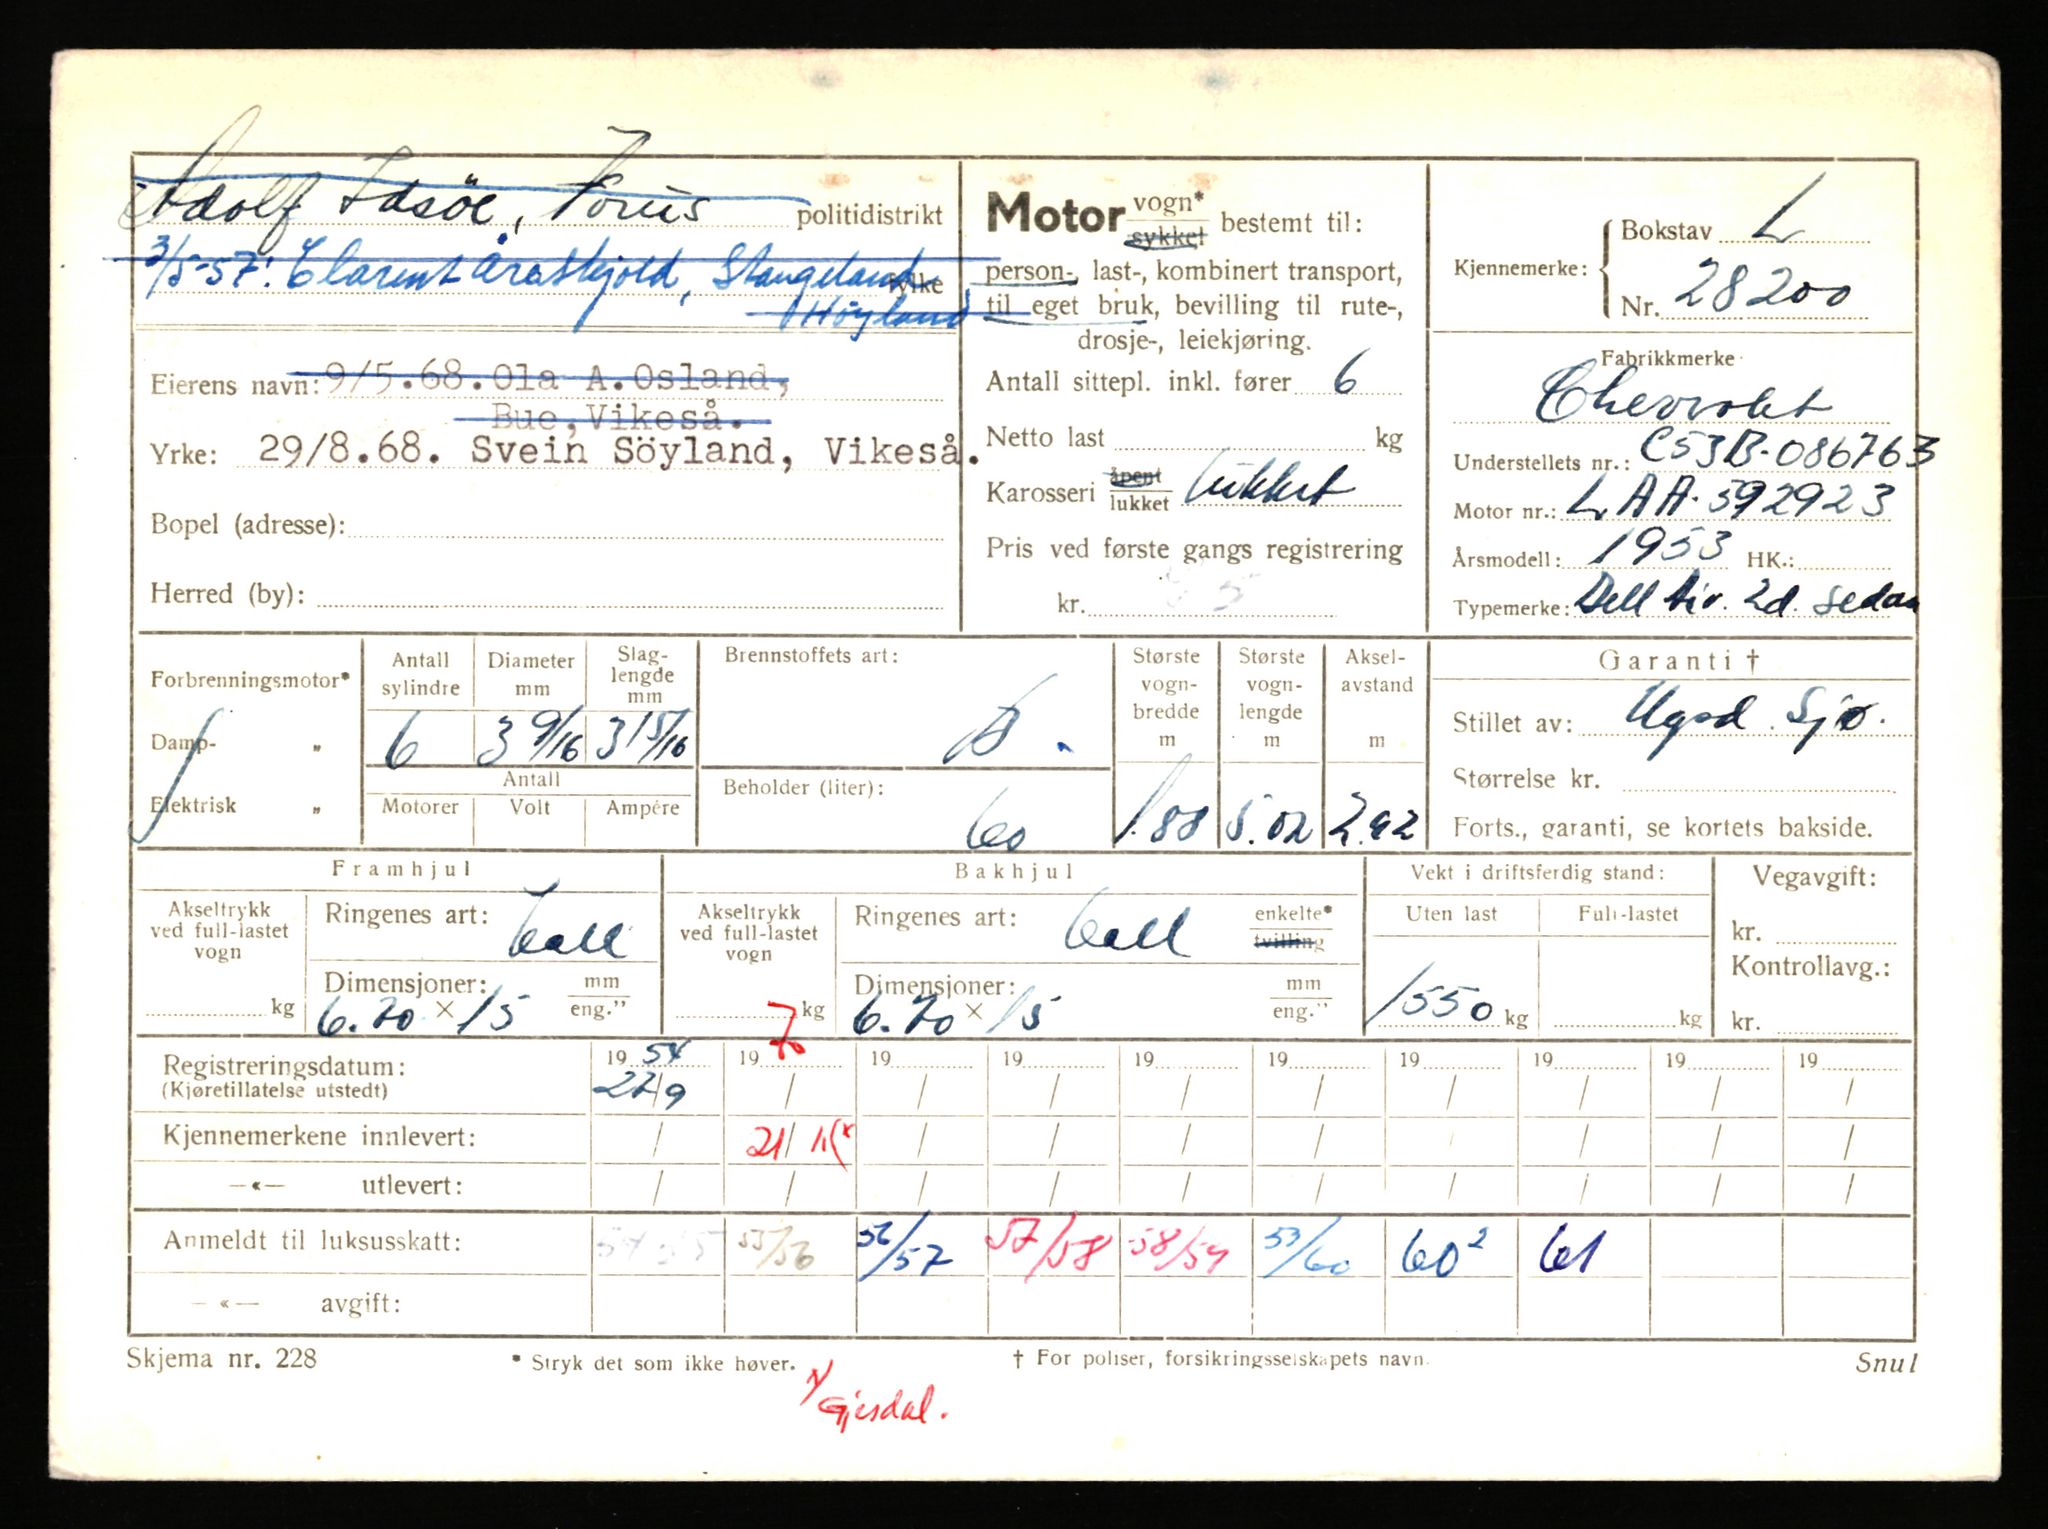 Adolf Idsöe, Forus politidistrikt
3/5-57: Clarent Årsskjold, Stangeland fylke
Höyland
Eierens navn: 9/5.68. Ola A. Osland,
Bue, Vikeså.
Yrke: 29/8.68. Svein Söyland, Vikeså.
Bopel (adresse):
Herred (by):
Motor vogn* sykkel bestemt til:
person-, last-, kombinert transport,
til eget bruk, bevilling til rute-,
drosje-, leiekjøring.
Antall sittepl. inkl. fører 6
Netto last kg
Karosseri åpent lukket lukket
Pris ved første gangs registrering
kr.
Kjennemerke: Bokstav L
Nr. 28200
Fabrikkmerke
Chevrolet
Understellets nr.: C53B-086763
Motor nr.: LAA-592923
Årsmodell: 1953 HK.:
Typemerke: Dell Air. 2d. sedan
Forbrenningsmotor*
Damp- „
Elektrisk „
Antall sylindre Diameter mm Slaglengde mm
6 3 9/16 3 15/16
Antall
Motorer Volt Ampére
Brennstoffets art:
B
Beholder (liter):
60
Største vognbredde m
1.88
Største vognlengde m
5.02
Akselavstand m
2.92
Garanti †
Stillet av: Sjø.
Størrelse kr.
Forts., garanti, se kortets bakside.
Framhjul
Akseltrykk ved full-lastet vogn
kg
Ringenes art:
Dimensjoner: mm
6.70 × 15 eng."
Bakhjul
Akseltrykk ved full-lastet vogn
kg
Ringenes art: enkelte* tvilling
Dimensjoner: mm
6.70 × 15 eng."
Vekt i driftsferdig stand:
Uten last Full-lastet
1550 kg kg
Vegavgift:
kr.
Kontrollavg.:
kr.
Registreringsdatum: 19 54 19 70 19 19 19 19 19 19 19 19
(Kjøretillatelse utstedt) 27/9 / / / / / / / / /
Kjennemerkene innlevert: / 21/ 11 / / / / / / / /
—«— utlevert: / / / / / / / / / /
Anmeldt til luksusskatt: 54 55 55/56 56/57 57/58 58/59 59/60 60² 61
—«— avgift:
Skjema nr. 228 * Stryk det som ikke høver. † For poliser, forsikringsselskapets navn. Snul
Gjesdal.